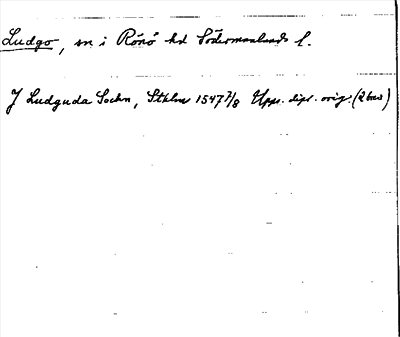 Ludgo, sn i Rönö hd Södermanlands l.
J Ludguda Sockn, Sthlm 1547 7/8 Upps. dipl. orig. (2 bes)